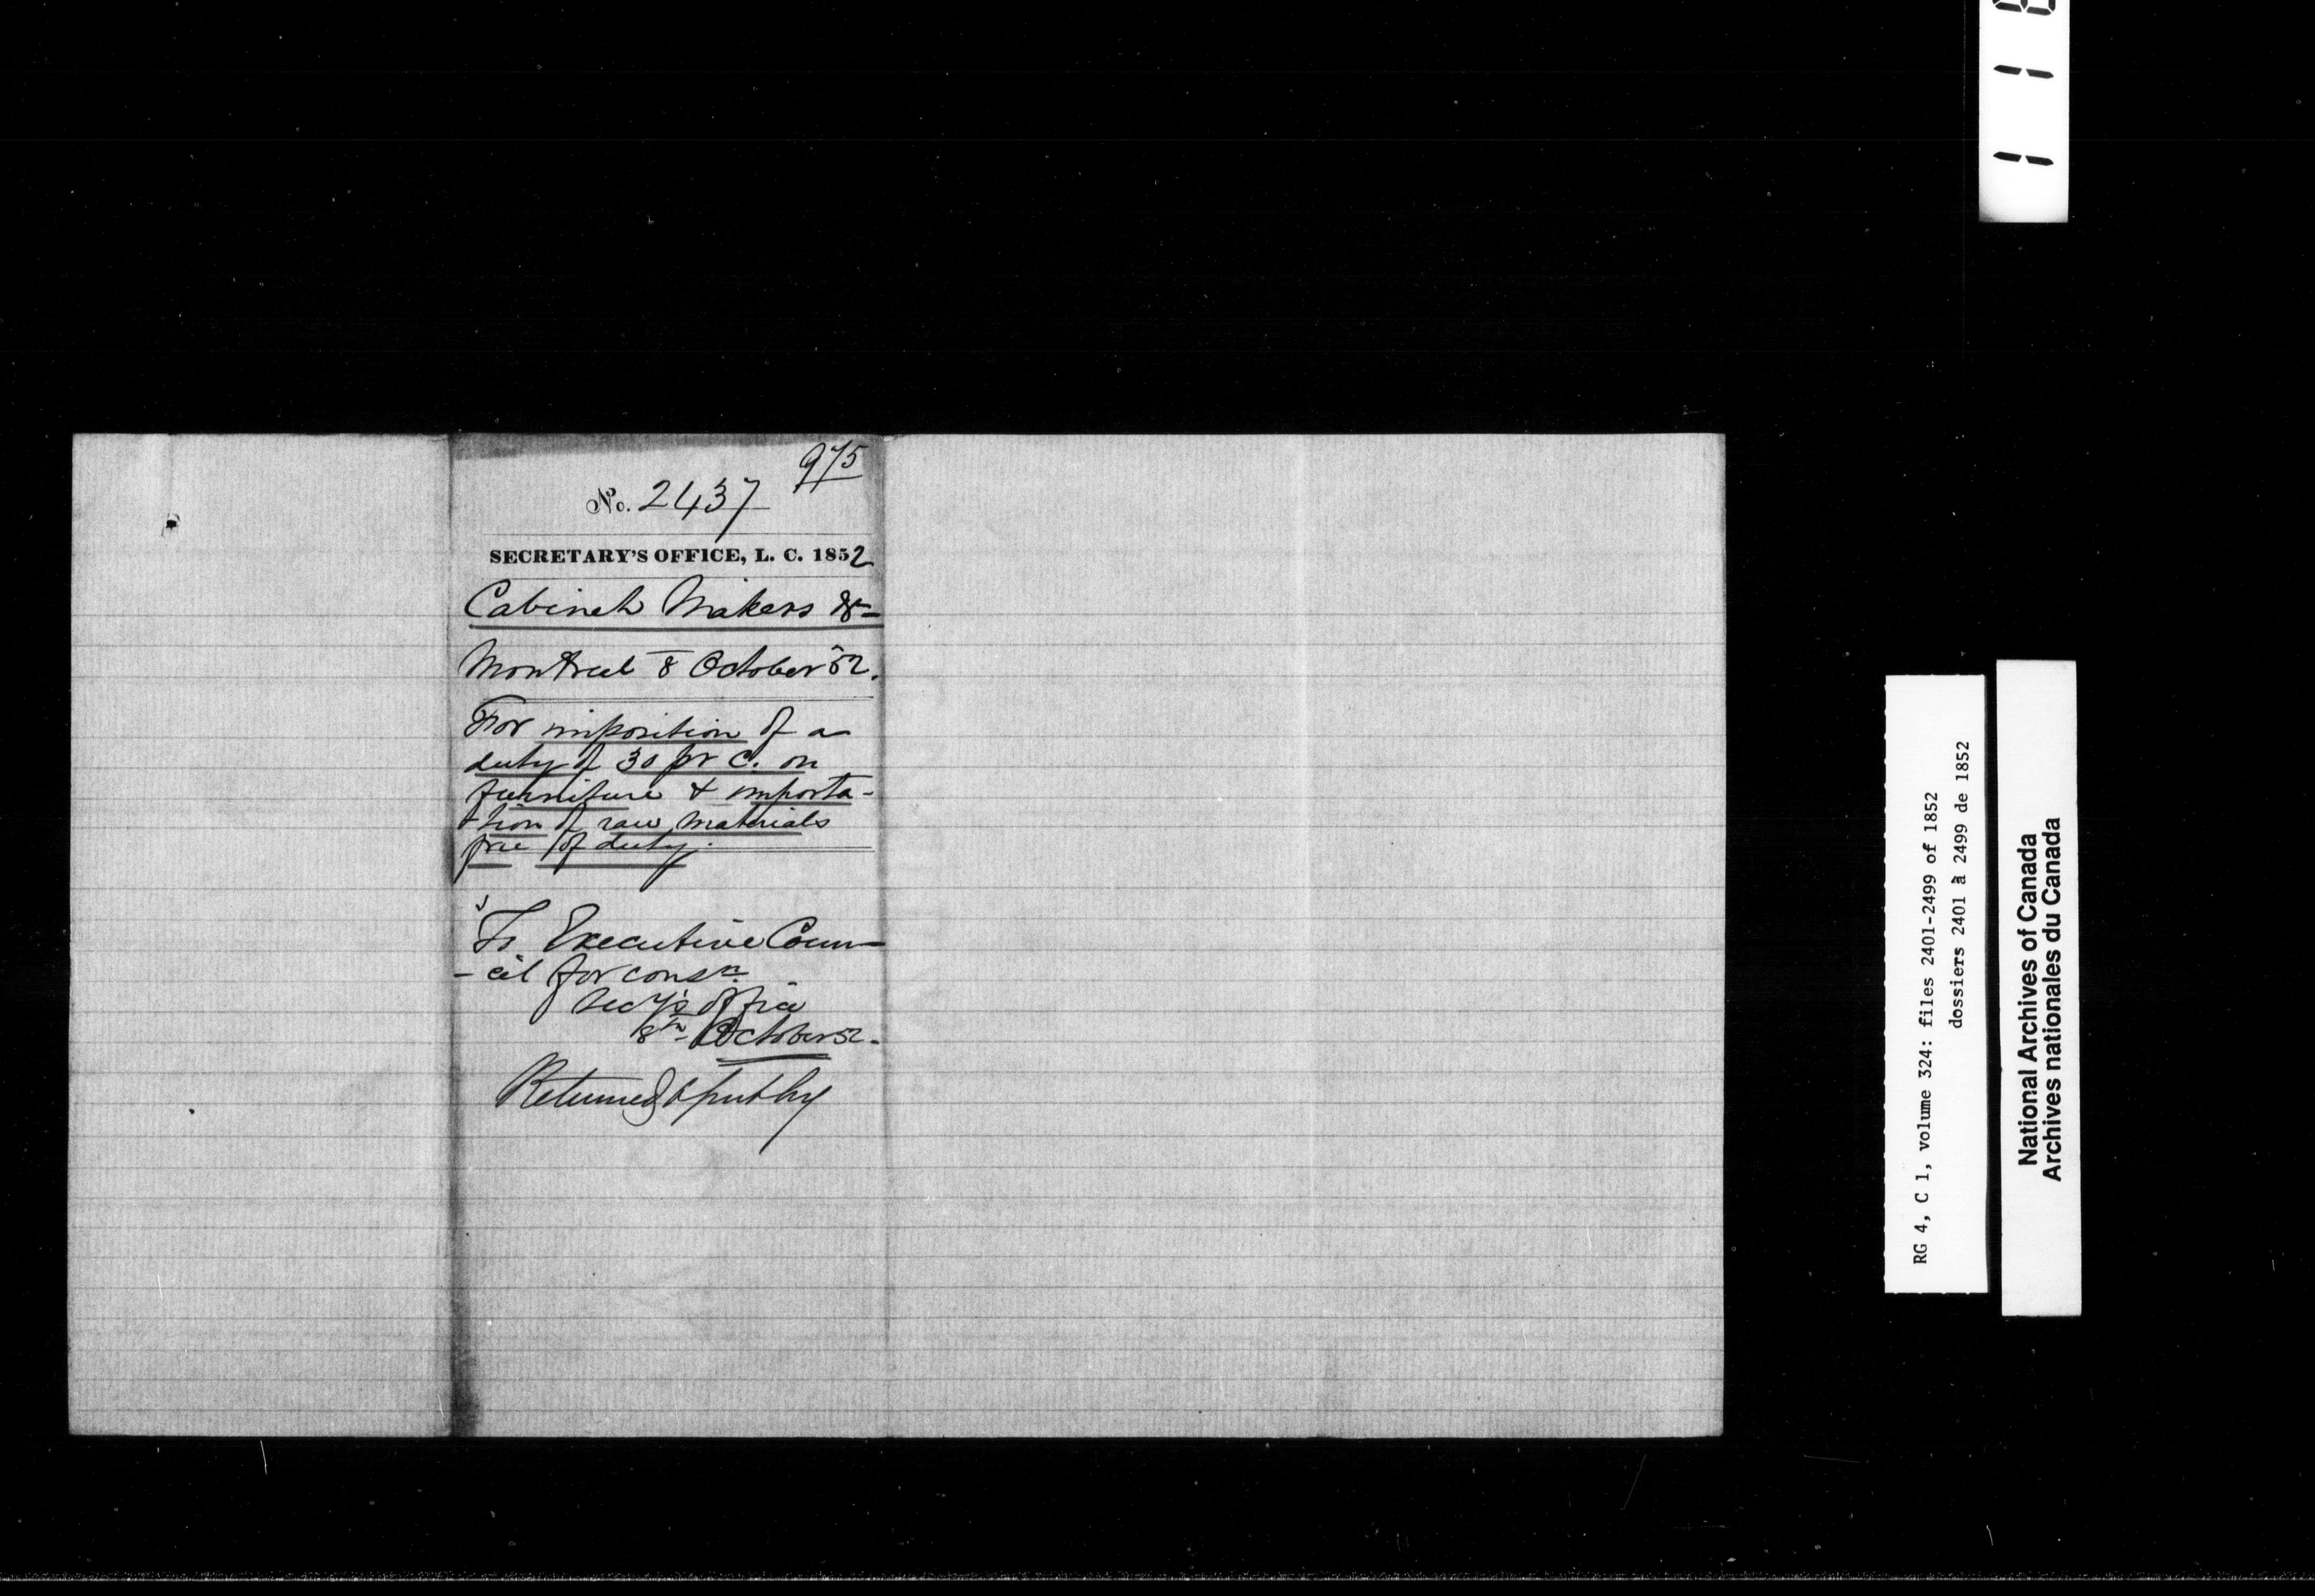 975
No. 2437
SECRETARY'S OFFICE, L. C. 1852
Cabinet Makers &c
Montreal 8 October 52.
For imposition of a
duty of 30 pr C. on
furniture & importa-
tion of raw materials
free of duty.
To Executive Coun-
-cil for consn.
Secy's Office
8th October 52.
Returned
RG 4, C 1, volume 324: files 2401-2499 of 1852
dossiers 2401 à 2499 de 1852
National Archives of Canada
Archives nationales du Canada